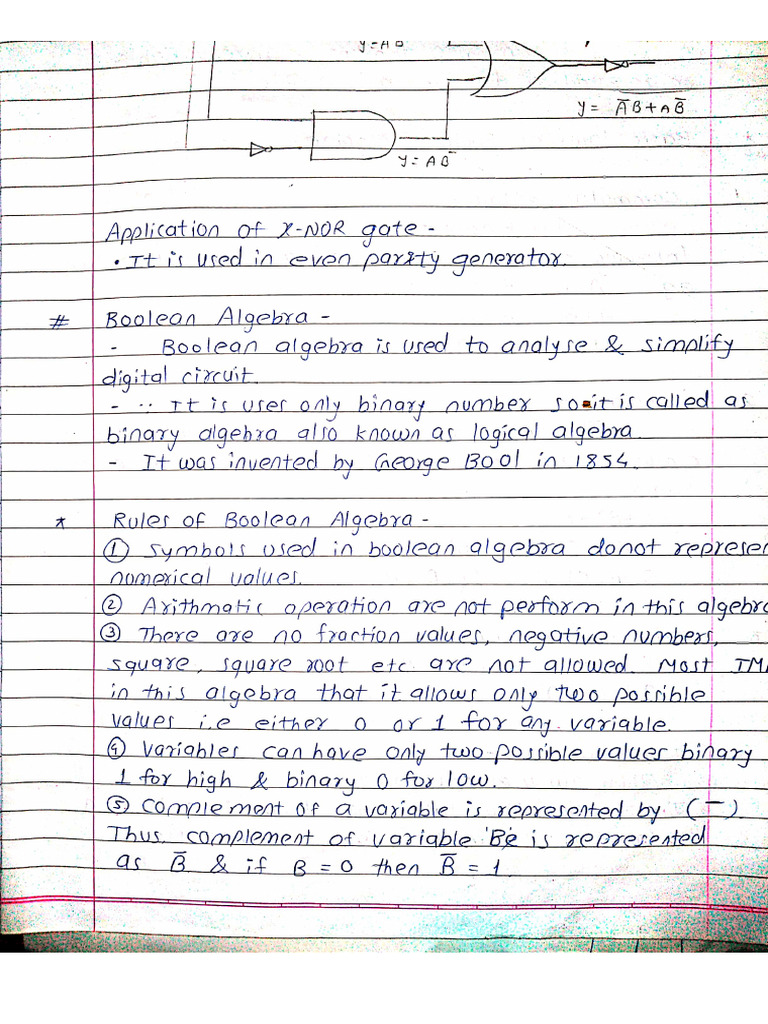 y = A̅B̅+AB̅
y = AB̅
Application of X-NOR gate -
• It is used in even parity generator.
# Boolean Algebra -
- Boolean algebra is used to analyse & simplify
digital circuit.
- ∵ It is uses only binary number so it is called as
binary algebra also known as logical algebra.
- It was invented by George Bool in 1854.
* Rules of Boolean Algebra -
① Symbols used in boolean algebra donot represe
numerical values.
② Arithmatic operation are not perform in this algebra
③ There are no fraction values, negative numbers,
square, square root etc are not allowed. Most IM
in this algebra that it allows only two possible
values i.e either 0 or 1 for any variable.
④ Variables can have only two possible values binary
1 for high & binary 0 for low.
⑤ Complement of a variable is represented by (¯)
Thus, complement of variable 'B' is represented
as B̅ & if B = 0 then B̅ = 1.